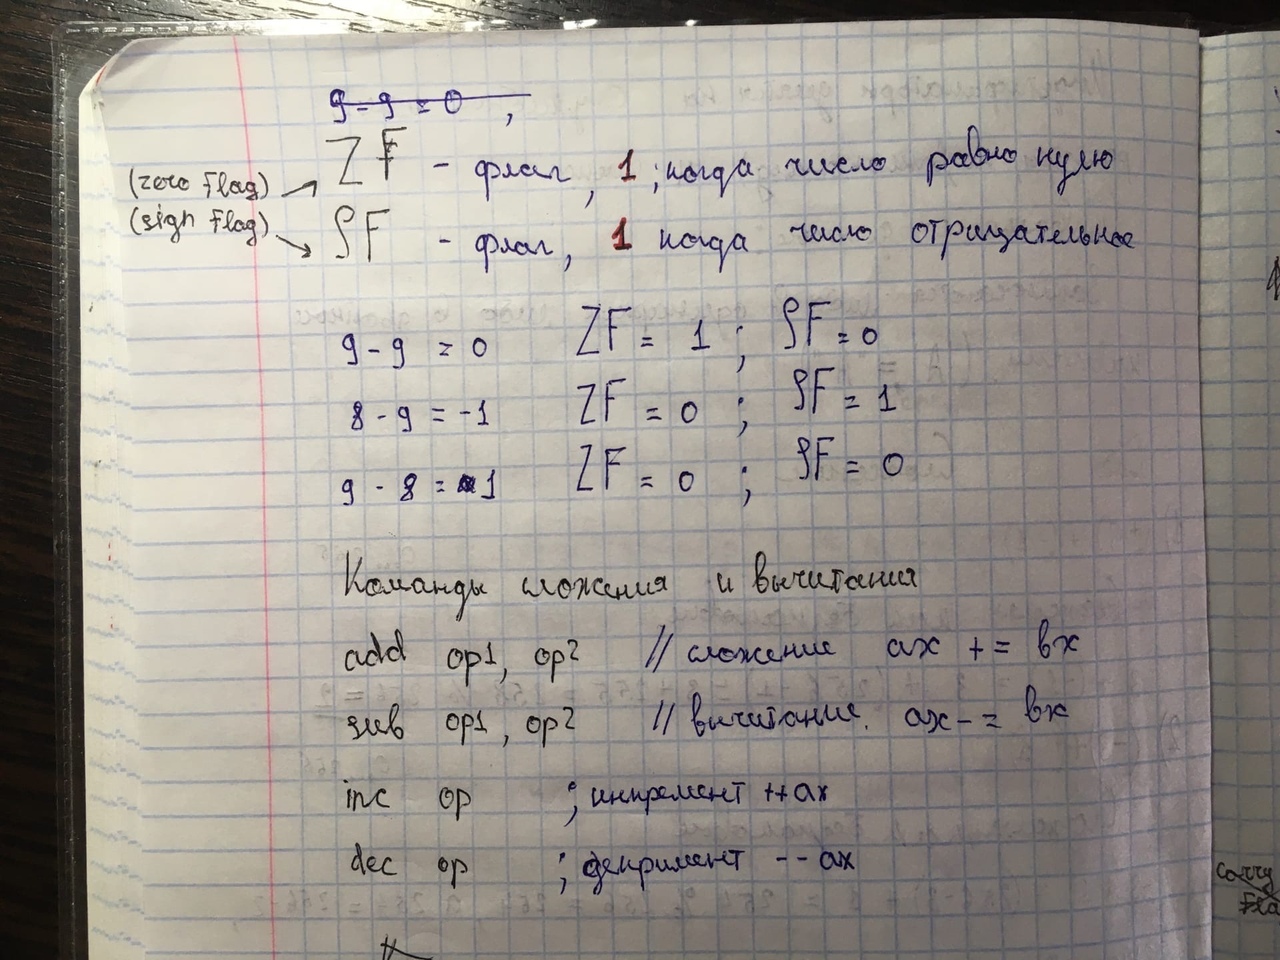 9 - 9 = 0 ,
(zero Flag) ZF - флаг, 1 ; когда число равно нулю
(sign Flag) SF - флаг, 1 когда число отрицательное
9 - 9 = 0 ZF = 1 ; SF = 0
8 - 9 = -1 ZF = 0 ; SF = 1
9 - 8 = 1 ZF = 0 ; SF = 0
Команды сложения и вычитания
add op1, op2 // сложение ax += bx
sub op1, op2 // вычитание. ax -= bx
inc op ; инкремент ++ax
dec op ; декримент --ax
Carry
Fla